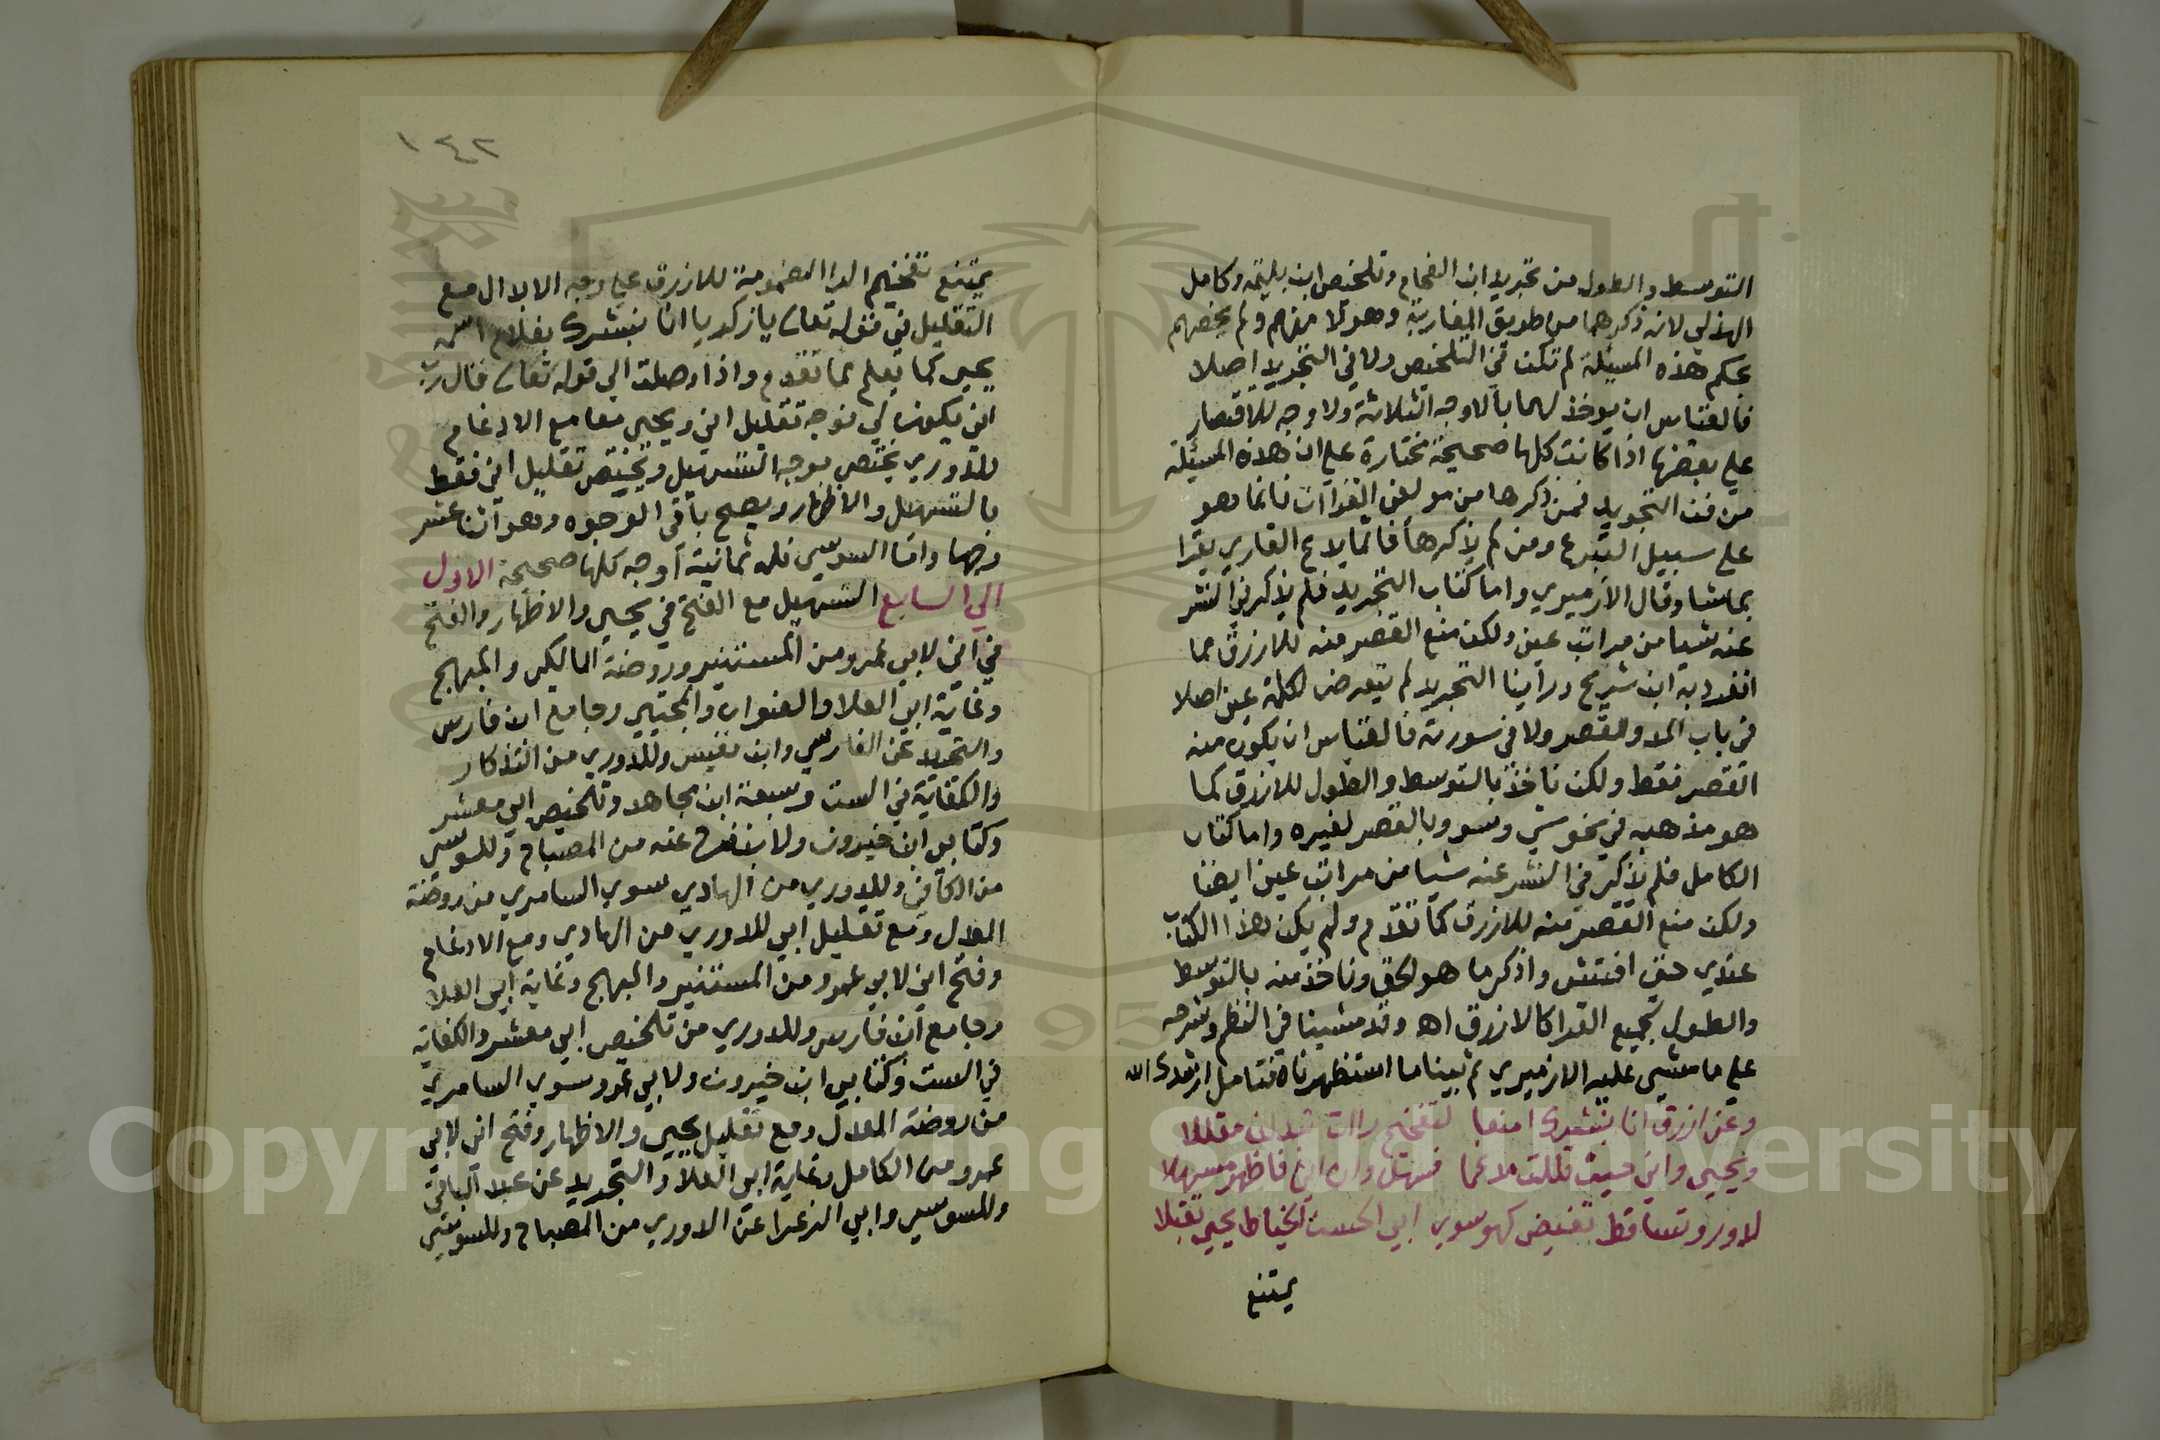 التوسط والطول من تجريد ابن الفحام وتلخيص ابن بليمة وكامل
الهذلي لانه ذكرهما من طريق المغاربة وهؤلا منهم ولم يخصهم
بحكم هذه المسئلة لم تكن في التلخيص ولا في التجريد اصلا
فالقياس ان يوخذ لهما بالاوجه الثلاثة ولا وجه للاقتصار
علي بعضها اذا كانت كلها صحيحة مختارة علي ان هذه المسئلة
من فن التجويد فمن ذكرها من مولفي القراات فانما هو
علي سبيل التبرع ومن لم يذكرها فانما يدع القاري يقرا
بماشا وقال الازميري واما كتاب التجريد فلم يذكر في النشر
عنه شيا من مراتب عين ولكن منع القصر منه للازرق مما
انفرد به ابن شريح وراينا التجريد لم يتعرض لكلمة عين اصلا
في باب المد والقصر ولا في سورته فالقياس ان يكون منه
القصر فقط ولكن ناخذ بالتوسط والطول للازرق كما
هو مذهبه في نحو شي وسوء وبالقصر لغيره واما كتاب
الكامل فلم يذكر في النشر عنه شيا من مراتب عين ايضا
ولكن منع القصر منه للازرق كما تقدم ولم يكن هذا الكتاب
عندي حتي افتش واذكر ما هو الحق وناخذ منه بالتوسط
والطول لجميع القرا كالازرق اه وقد مشينا في النظم وشرحه
علي ما مشي عليه الازميري ثم بينا ما استظهرناه فتامل ارشدك الله
وعن ازرق انا نبشرك امنعا لتفخيم راات مقللا
ويحيي واني حيث قللت مدغما فسهل وان اني فاظهر مسهلا
لدور وتساقط تغيض كهو سوي ابي الحسن الخياط يحيي تقبلا
يمتنع
١٤٢
يمتنع تفخيم الرا المضمومة للازرق علي وجه الابدال مع
التقليل في قوله تعالي يا زكريا انا نبشرك بغلام اسمه
يحيي كما يعلم مما تقدم واذا وصلت الي قوله تعالي قال رب
اني يكون لي فوجه تقليل اني ويحيي معا مع الادغام
للدوري يختص بوجه التسهيل ويختص تقليل اني فقط
بالتسهيل والاظهار ويصح باقي الوجوه وهو اثنا عشر
وجها واما السوسي فله ثمانية اوجه كلها صحيحة الاول
الي السابع التسهيل مع الفتح في يحيي والاظهار والفتح
في اني لابي عمرو من المستنير وروضة المالكي والمبهج
وغاية ابي العلا والعنوان والمجتبي وجامع ابن فارس
والتجريد عن الفارسي وابن نفيس وللدوري من التذكار
والكفاية في الست وسبعة ابن مجاهد وتلخيص ابي معشر
وكتابي ابن خيرون ولابن فرح عنه من المصباح وللسوسي
من الكافي وللدوري من الهادي سوي السامري من روضة
المعدل ومع تقليل اني للدوري من الهادي ومع الادغام
وفتح اني لابي عمرو من المستنير والمبهج وغاية ابي العلا
وجامع ابن فارس وللدوري من تلخيص ابي معشر والكفاية
في الست وكتابي ابن خيرون ولابي عمرو سوي السامري
من روضة المعدل ومع تقليل يحيي والاظهار وفتح اني لابي
عمرو من الكامل وغاية ابي العلا والتجريد عن عبد الباقي
وللسوسي وابي الزعرا عن الدوري من المصباح وللسوسي
Copyright © King Saud University